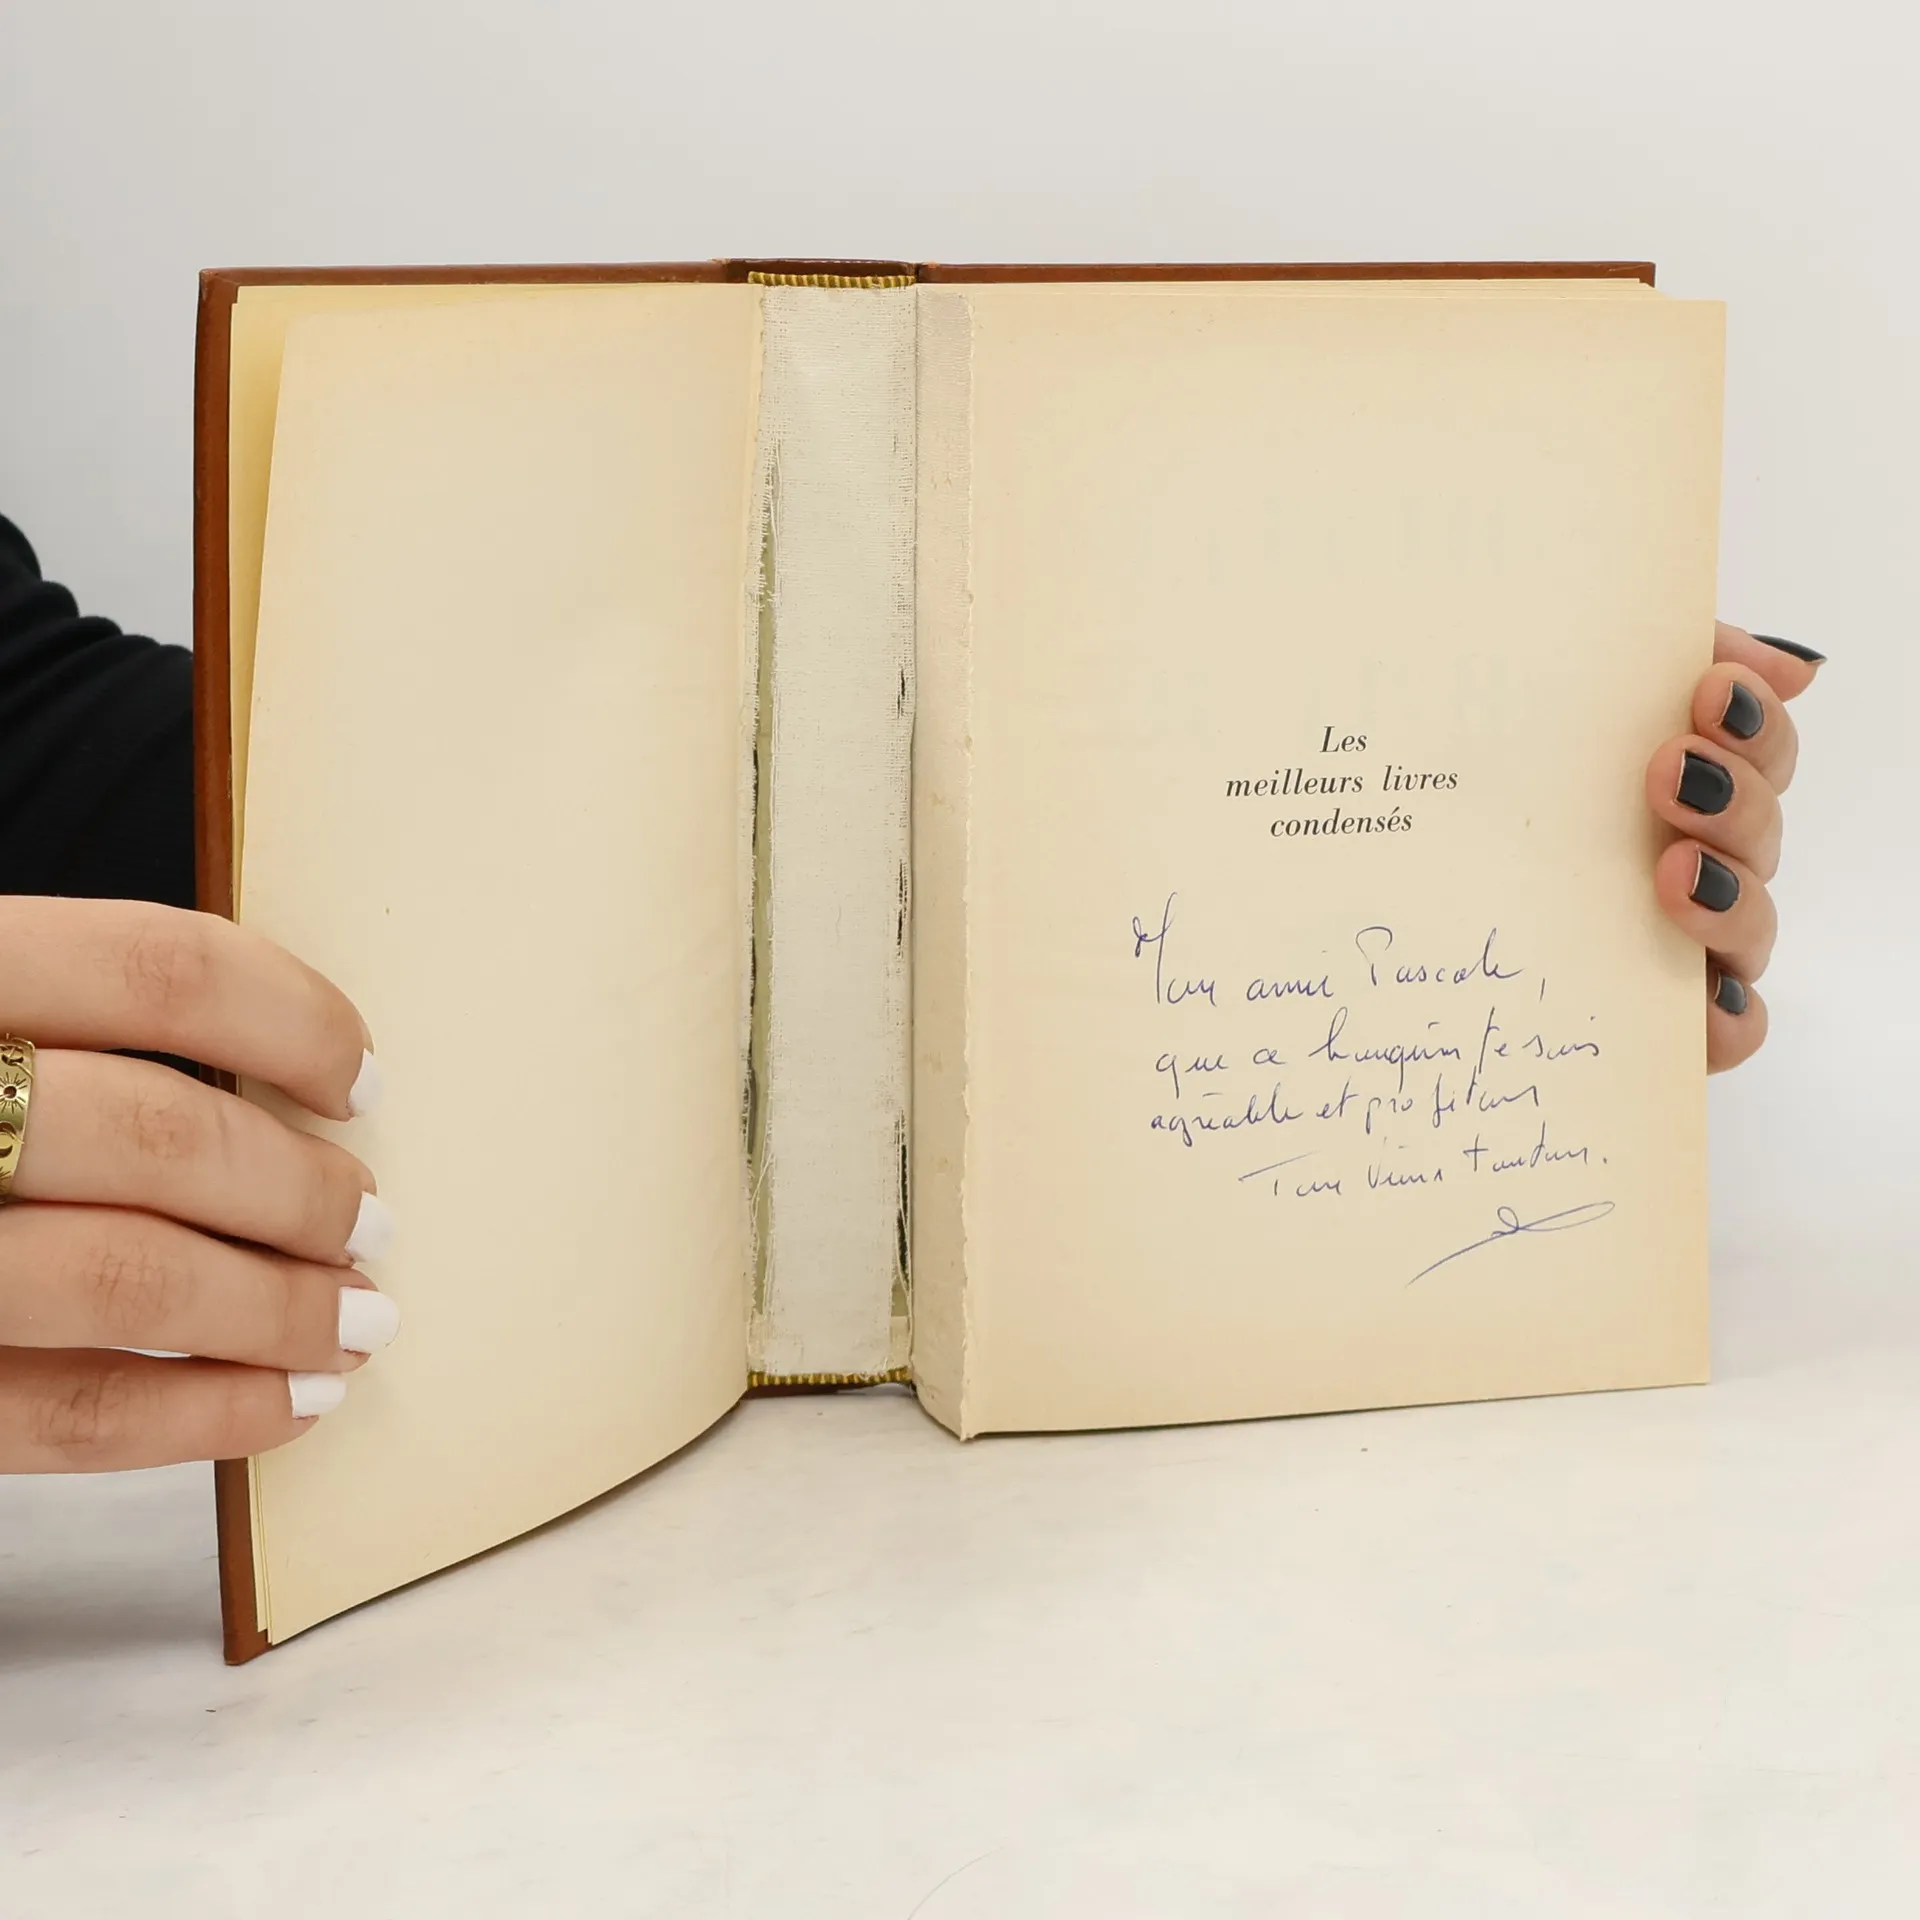 Les
meilleurs livres
condensés
Mon amie Pascale,
que ce bouquin te sois
agréable et profitant
Ton vieux